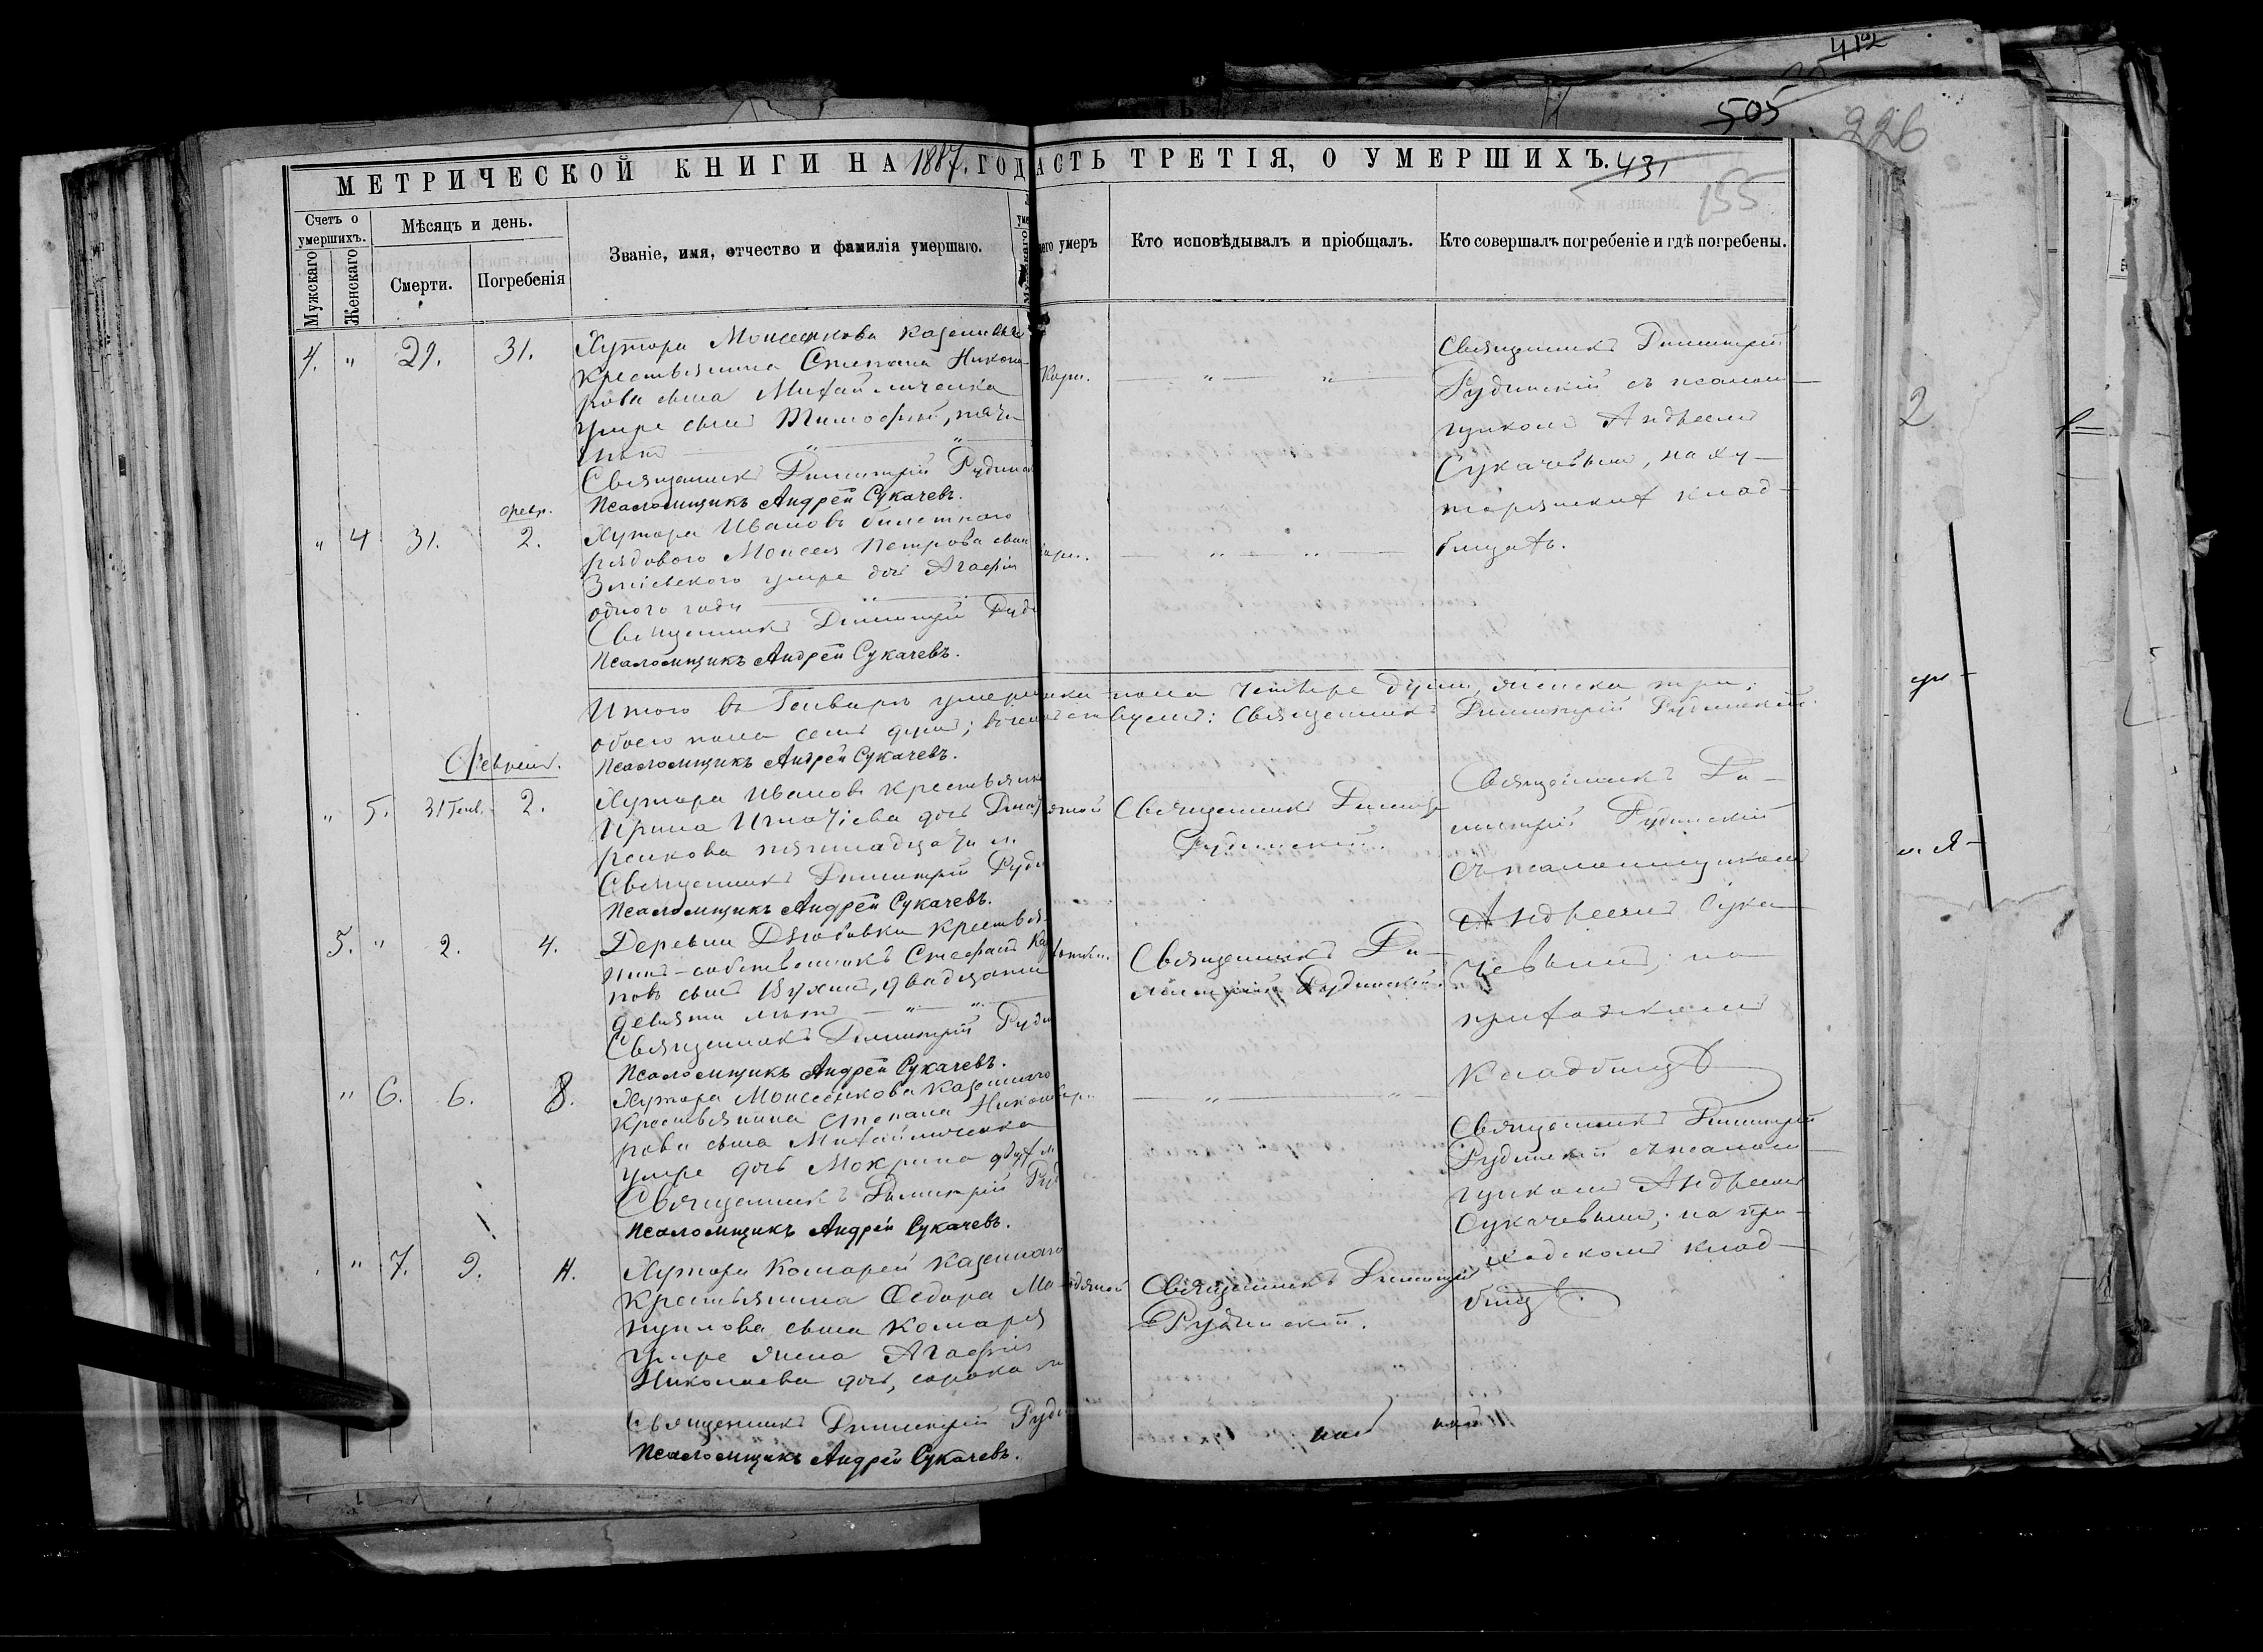 412
505
226
МЕТРИЧЕСКОЙ КНИГИ НА 1887. ГОД
АСТЬ ТРЕТІЯ, О УМЕРШИХЪ.
431
155
Счетъ о умершихъ.
Мѣсяцъ и день.
Званіе, имя, отчество и фамилія умершаго.
его умеръ
Кто исповѣдывалъ и пріобщалъ.
Кто совершалъ погребеніе и гдѣ погребены.
Мужскаго
Женскаго
Смерти.
Погребенія
4. " 29. 31.
Хутора Моисеенкова казеннаго
крестьянина Степана Никоно-
рова сына Михайличенка
умре сынъ Тимофей, пяти
лѣтъ
Священникъ Димитрій Рудинск
Псаломщикъ Андрей Сукачевъ.
Кори.
Священникъ Димитрій
Рудинскій съ псалом-
щикомъ Андреемъ
Сукачевымъ, на ху-
торянскихъ клад-
бищахъ.
" 4 31. февр. 2.
Хутора Иванова билетнаго
рядового Моисея Петрова сына
Зміевского умре дочь Агафія
одного года
Священникъ Димитрій Руди
Псаломщикъ Андрей Сукачевъ.
кори.
Итого въ Генварѣ умерш
ска пола четыре души, женска три;
обоего пола семь душъ; въ чемъ св
идѣтельствуемъ: Священникъ Димитрій Рудинскій.
Псаломщикъ Андрей Сукачевъ.
Февраль.
" 5. 31 Генв. 2.
Хутора Иванова крестьянка
Ирина Игнатіева дочь
пятнадцати л.
Священникъ Димитрій Руди
Псаломщикъ Андрей Сукачевъ.
Священникъ Димитр
Рудинскій.
Священникъ Ди-
митрій Рудинскій
съ псаломщикомъ
Андреемъ Сука-
чевымъ, на
приходскомъ
кладбищѣ
5. " 2. 4.
Деревни крестья-
нинъ-собственникъ Стефанъ
повъ сынъ двадцати
девяти лѣтъ
Священникъ Димитрій Руди
Псаломщикъ Андрей Сукачевъ.
Священникъ Ди-
митрій Рудинскій.
" 6. 6. 8.
Хутора Моисеенкова казеннаго
крестьянина Степана Никоно
рова сына Михайличенка
умре дочь Мокрина двухъ л
Священникъ Димитрій Руд
Псаломщикъ Андрей Сукачевъ.
Священникъ Димитрій
Рудинскій съ псалом-
щикомъ Андреемъ
Сукачевымъ, на при-
ходскомъ клад-
бищѣ.
" 7. 9. 11.
Хутора Комарей казеннаго
крестьянина Федора Ма
нуилова сына Комаря
умре жена Агафія
Николаева дочь, сорока л
Священникъ Димитрій Руди
Псаломщикъ Андрей Сукачевъ.
Священникъ Димитрій
Рудинскій.